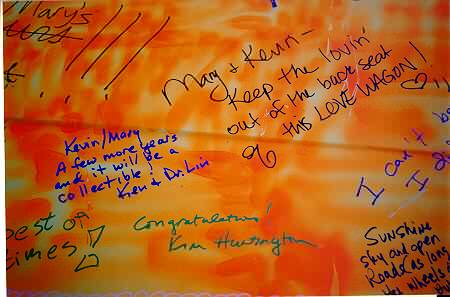 Mary's
Mary & Kevin -
Keep the lovin'
out of the back seat
this LOVE WAGON!
Kevin/Mary
A few more years
and it will be a
collectible!
Ken & Dr. Lin
I can't be
I
best of
times!
Congratulations!
Kim Huntington
Sunshine
sky and open
Roads as long
the wheels